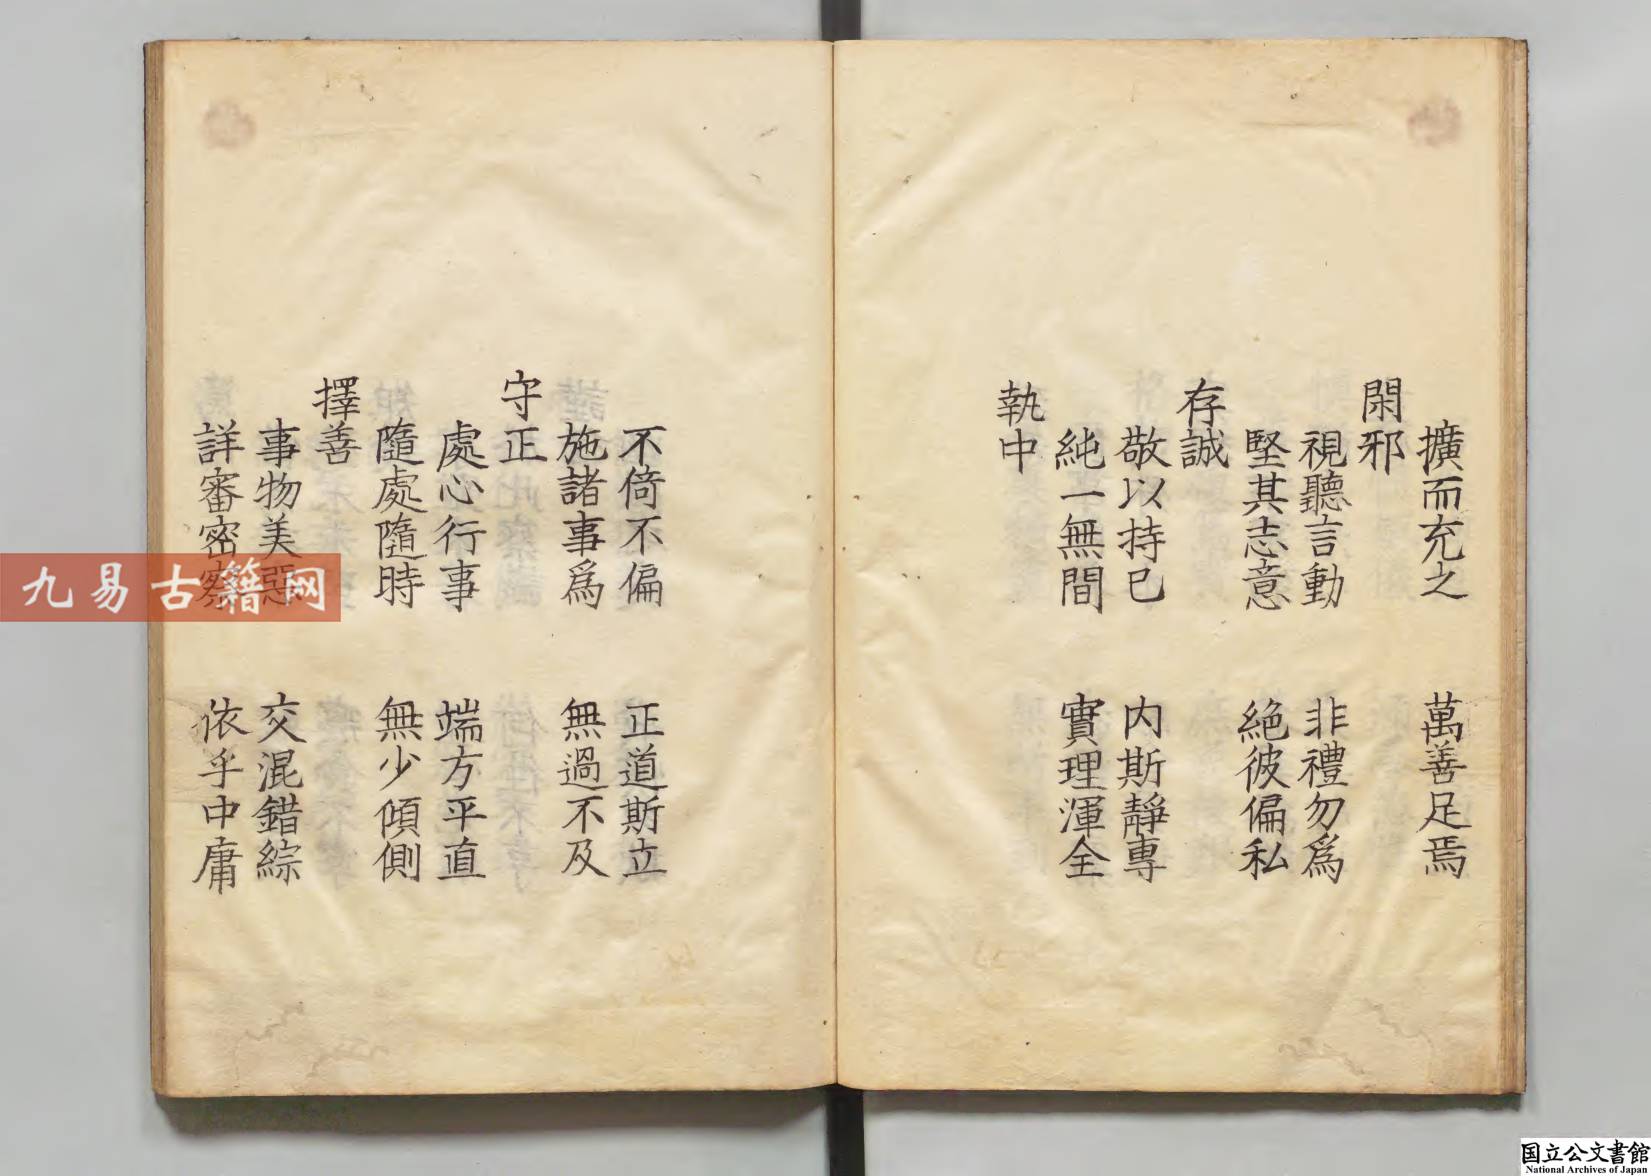 擴而充之 萬善足焉
閑邪
視聽言動 非禮勿為
堅其志意 絶彼偏私
存誠
敬以持已 内斯靜專
純一無間 實理渾全
執中
不倚不偏 正道斯立
施諸事為 無過不及
守正
處心行事 端方平直
隨處隨時 無少傾側
擇善
事物美惡 交混錯綜
詳審密察 依乎中庸
九易古籍网
国立公文書館
National Archives of Japan